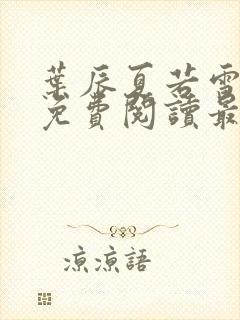 葉辰夏若雪
免費閱讀最
涼涼語